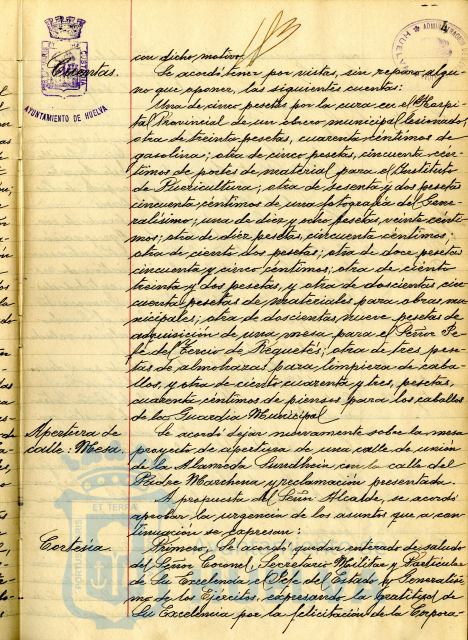 183
4
con dicho motivo.
Cuentas.
AYUNTAMIENTO DE HUELVA
Se acordó tener por vistas, sin reparo algu-
no que oponer, las siguientes cuentas:
Una de cinco pesetas por la cura en el Hospi-
tal Provincial de un obrero municipal lesionado;
otra de treinta pesetas, cuarenta céntimos de
gasolina; otra de cinco pesetas, cincuenta cén-
timos de portes de material para el Instituto
de Puericultura; otra de sesenta y dos pesetas
cincuenta céntimos de una fotografía del Gene-
ralísimo; una de diez y ocho pesetas, veinte cénti-
mos; otra de diez pesetas, cincuenta céntimos;
otra de ciento dos pesetas; otra de doce pesetas
cincuenta y cinco céntimos; otra de ciento
treinta y dos pesetas, y otra de doscientas cin-
cuenta pesetas de materiales para obras mu-
nicipales; otra de doscientas nueve pesetas de
adquisición de una mesa para el Señor Je-
fe del Tercio de Requetés; otra de tres pese-
tas de almohazas para limpieza de caba-
llos, y otra de ciento cuarenta y tres pesetas,
cuarenta céntimos de piensos para los caballos
de la Guardia Municipal.
Apertura de
calle: Mesa.
Se acordó dejar nuevamente sobre la mesa
proyecto de apertura de una calle de unión
de la Alameda Sundheim con la calle del
Padre Marchena y reclamación presentada.
A propuesta del Señor Alcalde, se acordó
aprobar la urgencia de los asuntos que a con-
tinuación se expresan:
Cortesía.
Primero, la acordó quedar enterado de saludo
del Señor Coronel, Secretario Militar y Particular
de Su Excelencia el Jefe del Estado y Generalísi-
mo de los Ejércitos, expresando la gratitud de
Su Excelencia por la felicitación de la Corpora-